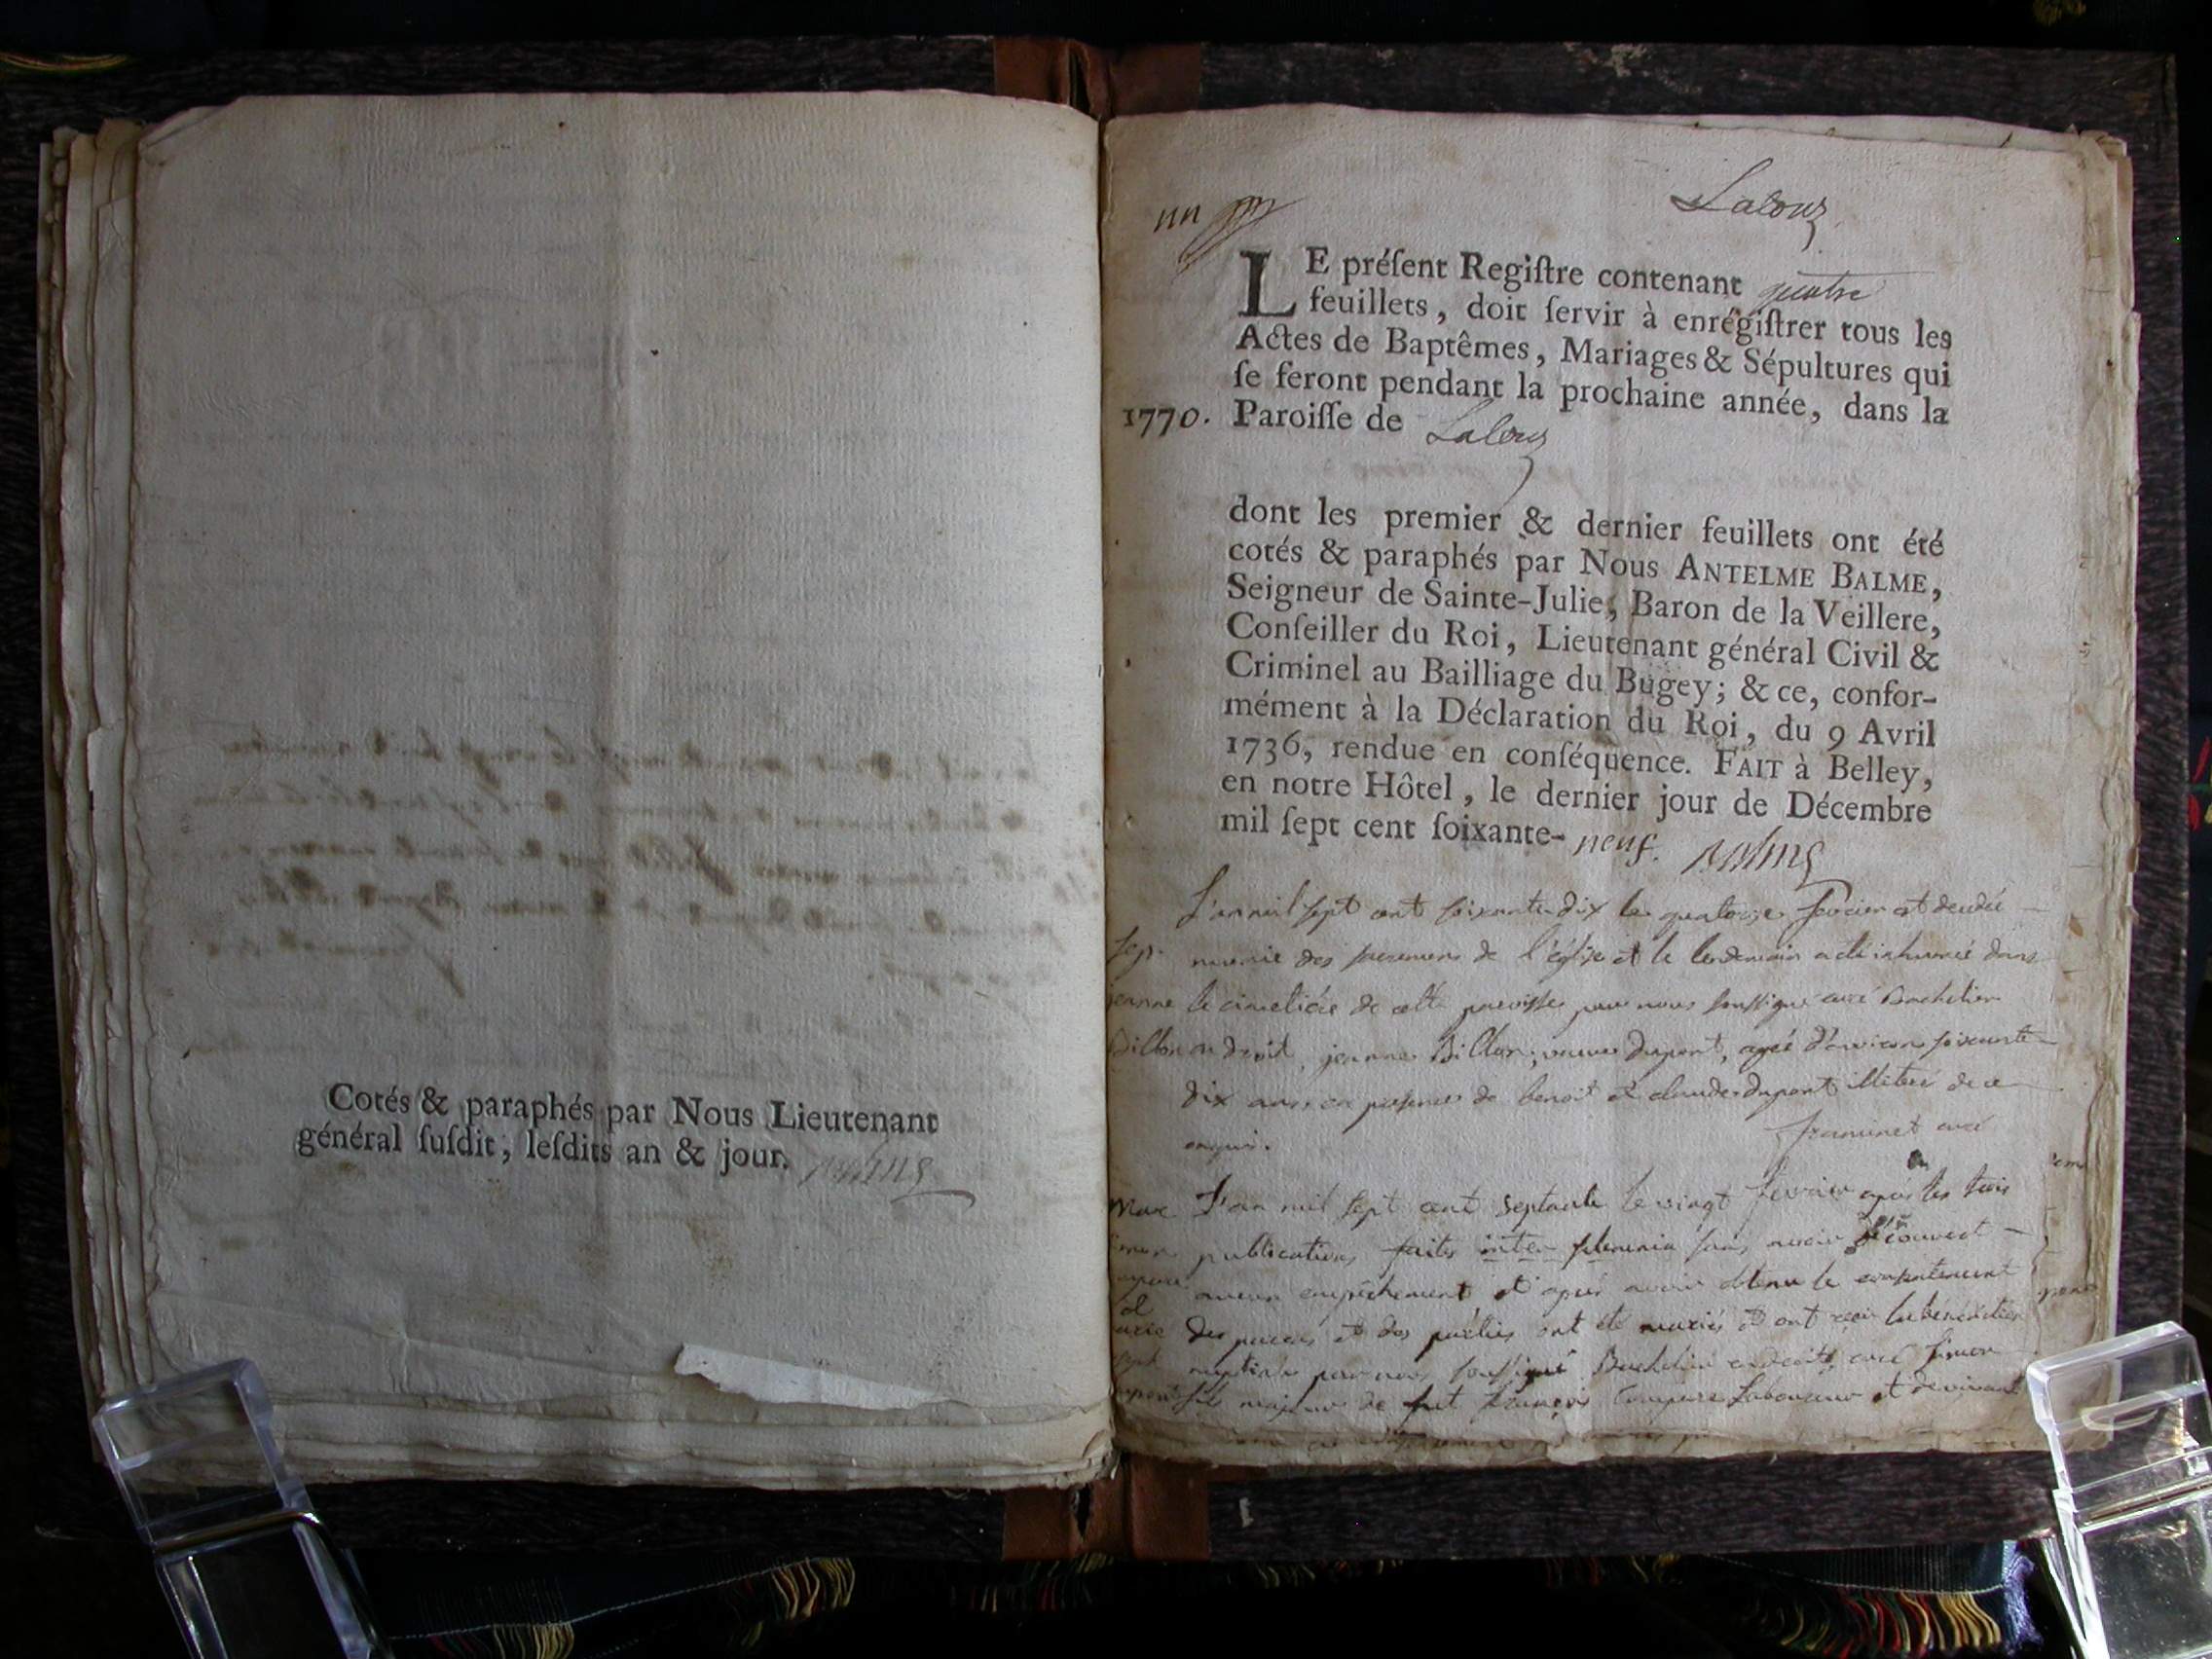 Cotés & paraphés par Nous Lieutenant
général ſuſdit, leſdits an & jour. Balme
un
Lalouz
LE préſent Regiſtre contenant quatre
feuillets, doit ſervir à enrégiſtrer tous les
Actes de Baptêmes, Mariages & Sépultures qui
ſe feront pendant la prochaine année, dans la
1770. Paroiſſe de Lalouz
dont les premier & dernier feuillets ont été
cotés & paraphés par Nous ANTELME BALME,
Seigneur de Sainte-Julie, Baron de la Veillere,
Conſeiller du Roi, Lieutenant général Civil &
Criminel au Bailliage du Bugey; & ce, confor-
mément à la Déclaration du Roi, du 9 Avril
1736, rendue en conſéquence. FAIT à Belley,
en notre Hôtel, le dernier jour de Décembre
mil ſept cent ſoixante- neuf. Balme
L'an mil sept cent soixante dix le quatorze fevrier est decedée
sep. munie des sacremens de l'église et le lendemain a été inhumée dans
jeanne le cimetière de cette paroisse par nous soussigné curé Bachelier
Billon en droit, jeanne Billon, veuve dupont, agée d'environ soixante
dix ans en presence de benoit et claude dupont illiteré de ce
enquis. curé
Mare L'an mil sept cent septante le vingt fevrier après les trois
publications faites inter solemnia sans avoir découvert
aucun empêchement et après avoir obtenu le consentement
et des parens et des parties ont été mariés et ont reçu la bénédiction
nuptiale par nous soussigné Bachelier en droit, curé simon
fils majeur de fut françois Compare Laboureur et devivant